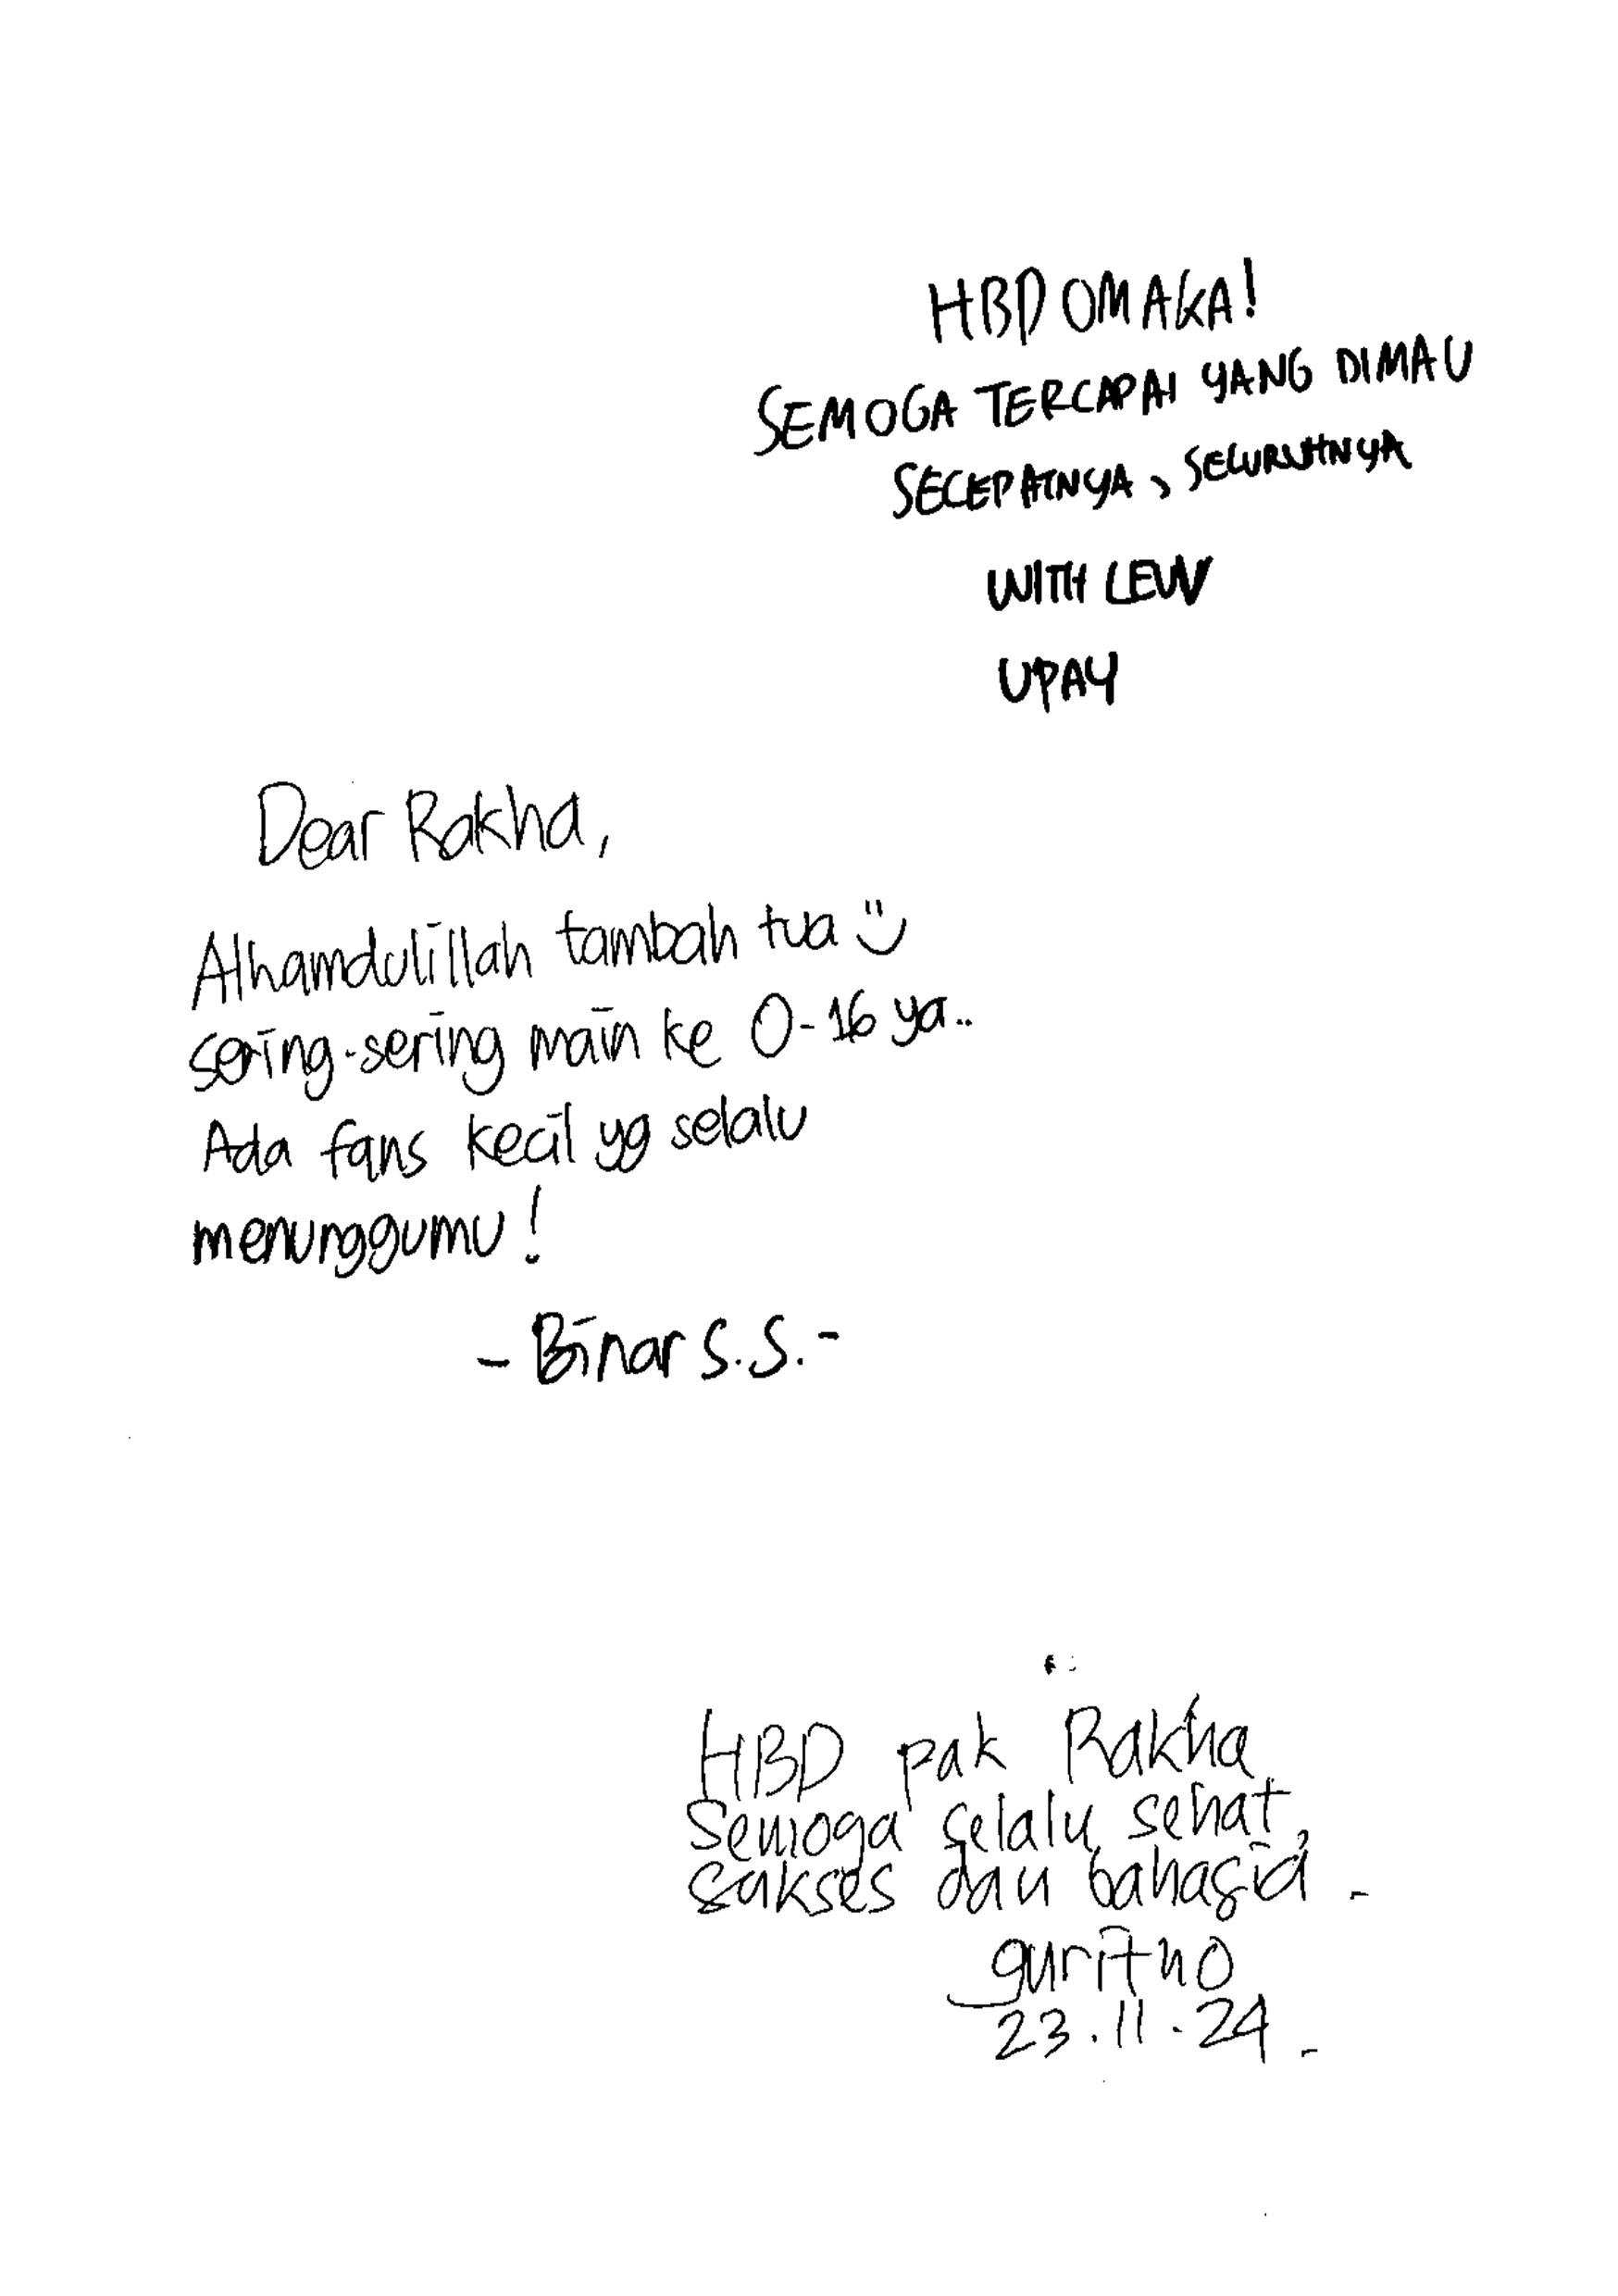 HBD OMAKA!
SEMOGA TERCAPAI YANG DIMAU
SECEPATNYA, SELURUHNYA
WITH LEVV
UPAY
Dear Rakha,
Alhamdulillah tambah tua :)
sering-sering main ke O-16 ya..
Ada fans kecil yg selalu
menunggumu!
- Binar S.S. -
HBD pak Rakha
Semoga selalu sehat,
sukses dan bahagia.
guritno
23.11.24.